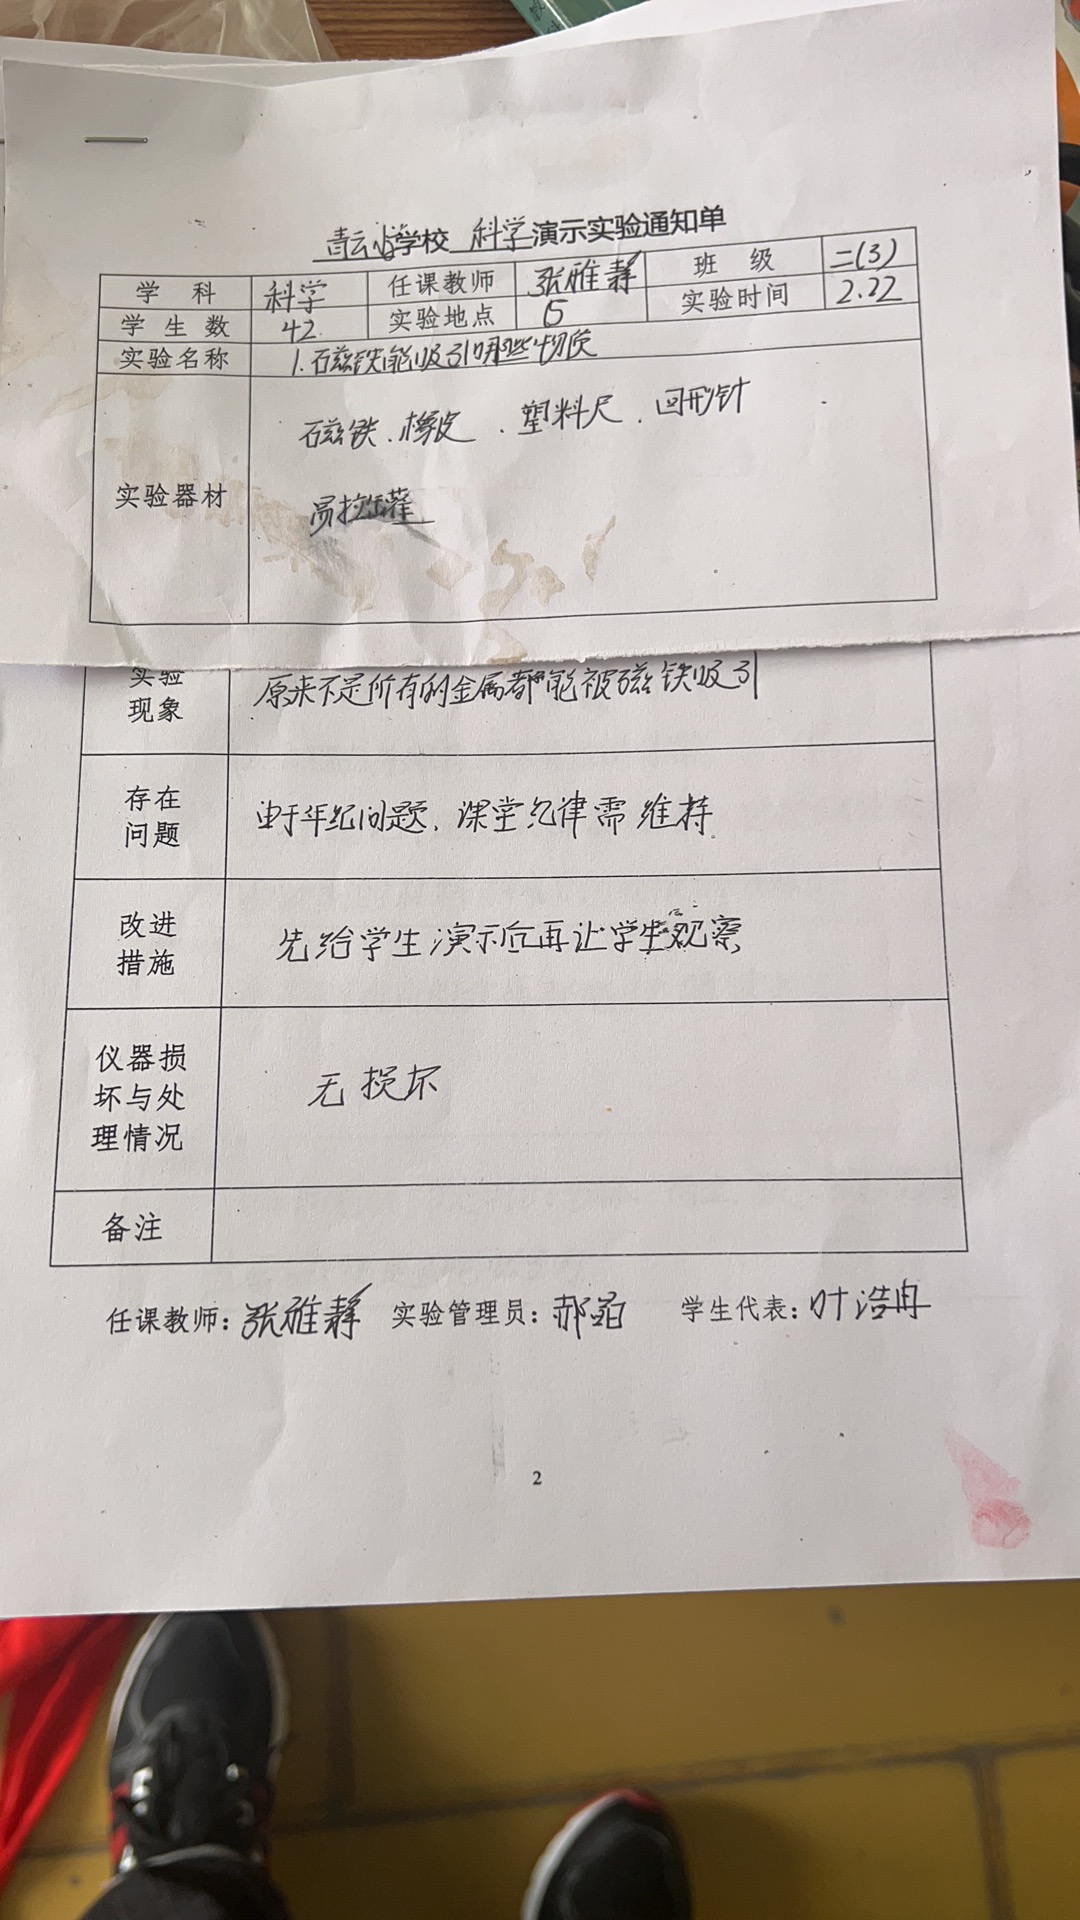 青云小学学校 科学 演示实验通知单
学 科 科学 任课教师 张雅静 班 级 二(3)
学生数 42 实验地点 15 实验时间 2.22
实验名称 1.磁铁能吸引哪些物质
实验器材 磁铁、橡皮、塑料尺、回形针
易拉罐
实验现象 原来不是所有的金属都能被磁铁吸引
存在问题 由于年纪问题、课堂纪律需维持
改进措施 先给学生演示后再让学生观察
仪器损坏与处理情况 无损坏
备注
任课教师：张雅静 实验管理员：郝 学生代表：叶浩冉
2